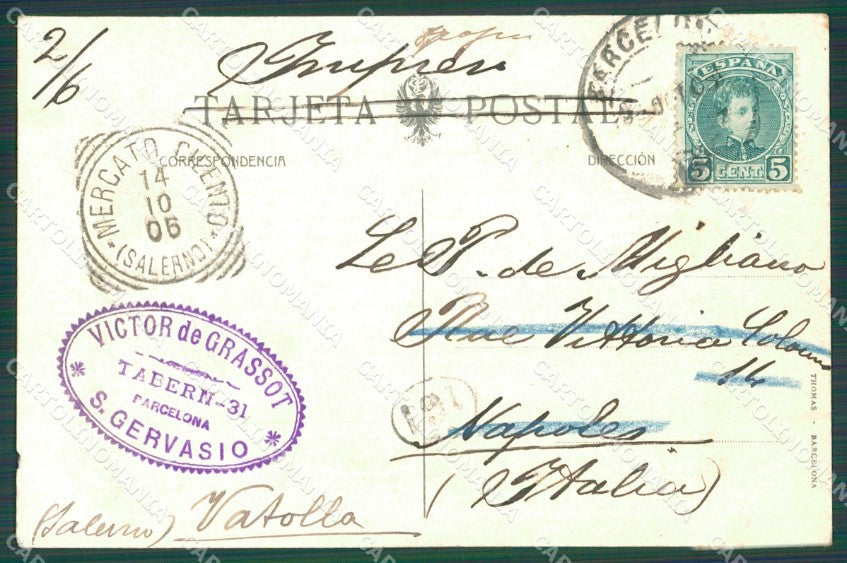 2/6
Impreso
TARJETA POSTAL
CORRESPONDENCIA
DIRECCIÓN
BARCELONA
ESPAÑA
5 CENT. 5
MERCATO CILENTO
14
10
06
(SALERNO)
Le P. de Migliano
Rue Vittoria Colonna
14
Napoles
(Italia)
VICTOR de GRASSOT
TABERN-31
BARCELONA
S. GERVASIO
(Salerno) Vatolla
THOMAS - BARCELONA
CARTOLINOMANIA